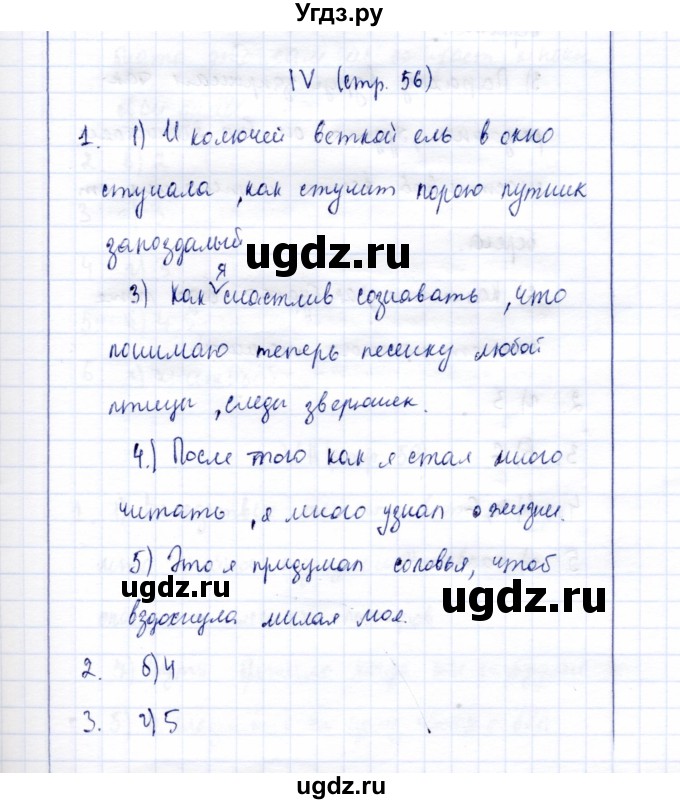 Угдз.ру
IV (стр. 56)
1. 1) И колючей веткой ель в окно
стучала, как стучит порою путник
запоздалый.
ugdz.ru
я
3) Как счастлив сознавать, что
понимаю теперь песенку любой
птицы, следы зверюшек.
4.) После того как я стал много
читать, я много узнал о жизни.
5) Это я придумал соловья, чтоб
ugdz.ru
ugdz.ru
вздохнула милая моя.
2. б) 4
3. г) 5
ugdz.ru